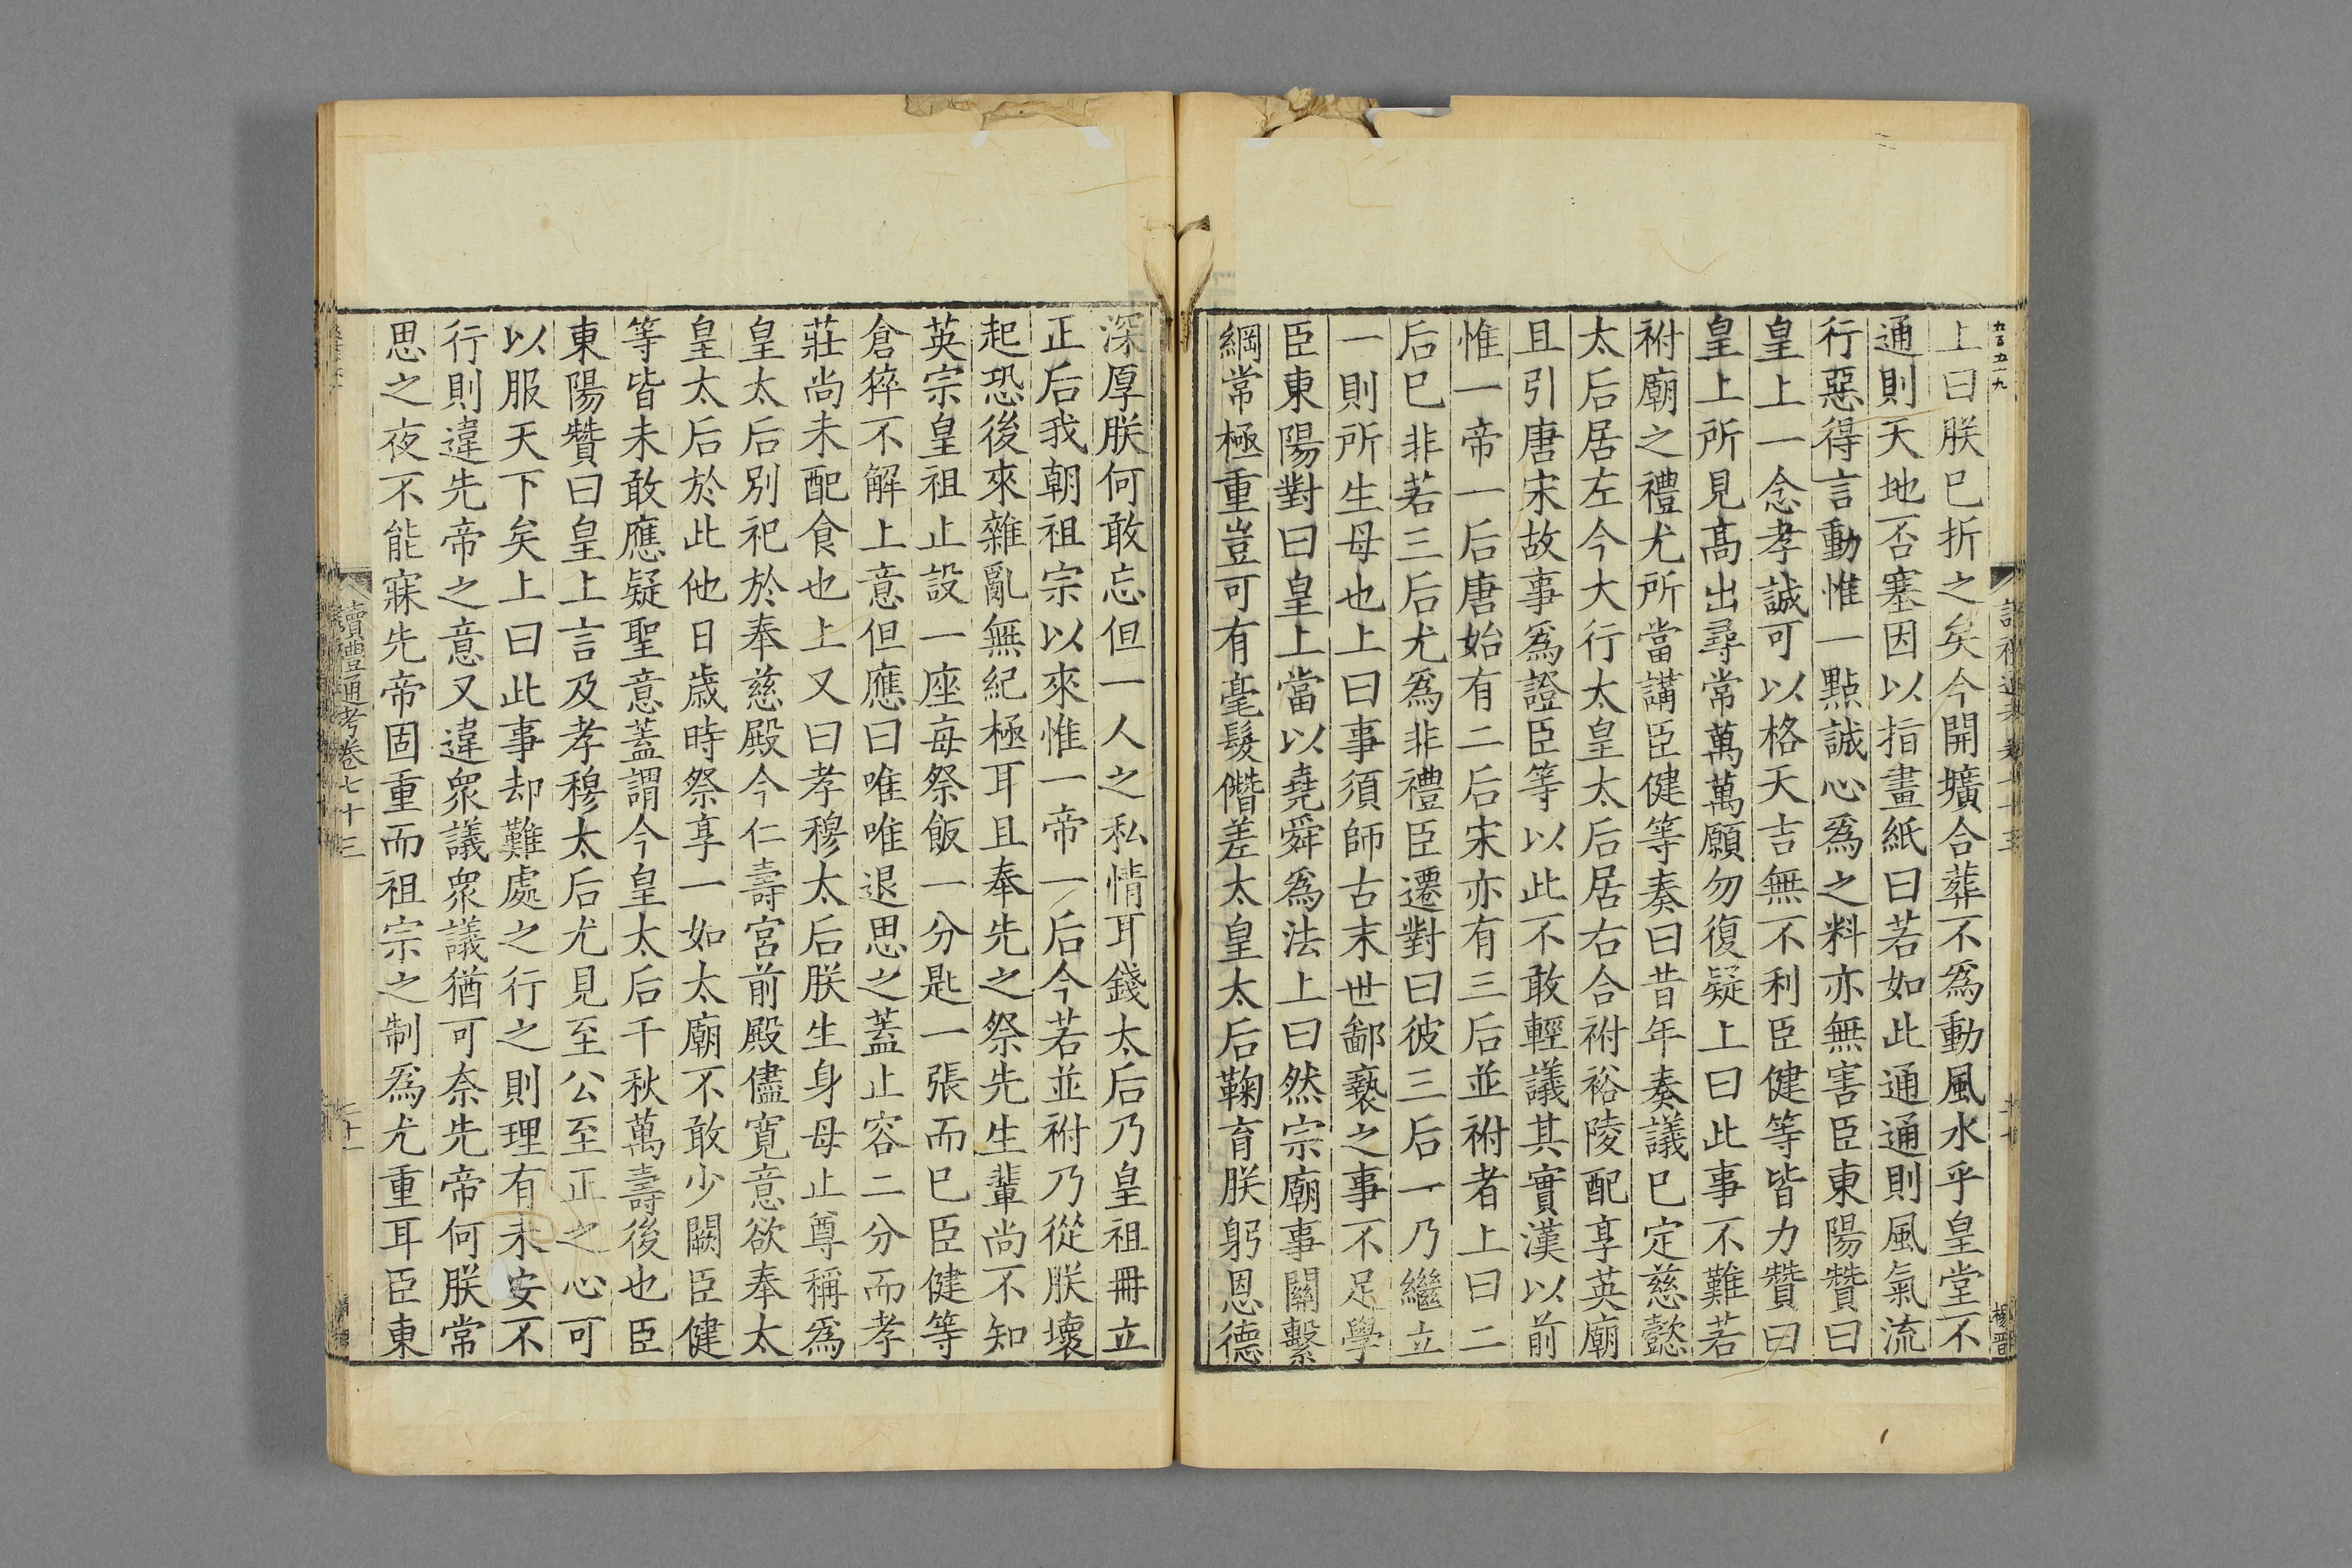 上曰朕已折之矣今開壙合葬不爲動風水乎皇堂不
通則天地否塞因以指畫紙曰若如此通通則風氣流
行惡得言動惟一點誠心爲之料亦無害臣東陽贊曰
皇上一念孝誠可以格天吉無不利臣健等皆力贊曰
皇上所見高出尋常萬萬願勿復疑上曰此事不難若
祔廟之禮尤所當講臣健等奏曰昔年奏議已定慈懿
太后居左今大行太皇太后居右合祔裕陵配享英廟
且引唐宋故事爲證臣等以此不敢輕議其實漢以前
惟一帝一后唐始有二后宋亦有三后並祔者上曰二
后已非若三后尤爲非禮臣遷對曰彼三后一乃繼立
一則所生母也上曰事須師古末世鄙褻之事不足學
臣東陽對曰皇上當以堯舜爲法上曰然宗廟事關繫
綱常極重豈可有毫髮僭差太皇太后鞠育朕躬恩德
深厚朕何敢忘但一人之私情耳錢太后乃皇祖冊立
正后我朝祖宗以來惟一帝一后今若並祔乃從朕壞
起恐後來雜亂無紀極耳且奉先之祭先生輩尚不知
英宗皇祖止設一座每祭飯一分匙一張而已臣健等
倉猝不解上意但應曰唯唯退思之蓋止容二分而孝
莊尚未配食也上又曰孝穆太后朕生身母止尊稱爲
皇太后別祀於奉慈殿今仁壽宮前殿儘寬意欲奉太
皇太后於此他日歲時祭享一如太廟不敢少闕臣健
等皆未敢應疑聖意蓋謂今皇太后千秋萬壽後也臣
東陽贊曰皇上言及孝穆太后尤見至公至正之心可
以服天下矣上曰此事却難處之行之則理有未安不
行則違先帝之意又違衆議衆議猶可奈先帝何朕常
思之夜不能寐先帝固重而祖宗之制爲尤重耳臣東
讀禮通考卷七十三